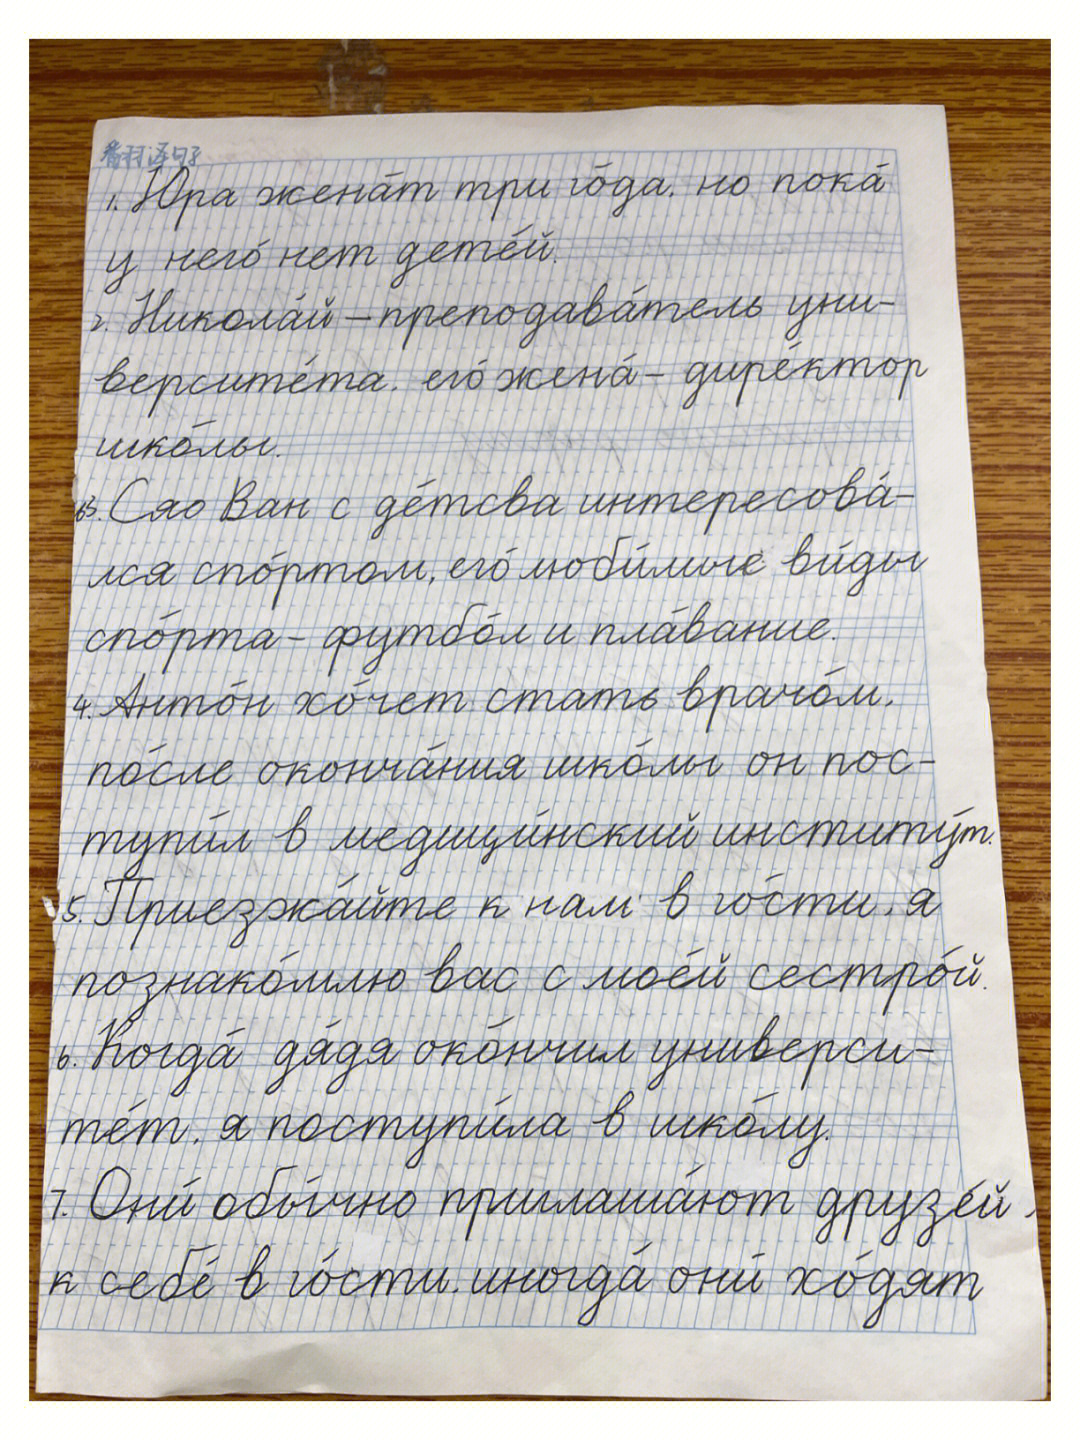 翻译句子
1. Ю́ра жена́т три го́да. но пока́
у него́ нет дете́й.
2. Никола́й – преподава́тель уни-
верситéта. его́ жена́ – дирéктор
шко́лы.
3. Сяо Ван с дéтсва интересова́-
лся спо́ртом, его́ люби́мые ви́ды
спо́рта – футбо́л и пла́вание.
4. Анто́н хо́чет стать врачо́м,
по́сле оконча́ния шко́лы он пос-
тупи́л в медици́нский институ́т.
5. Приезжа́йте к нам в го́сти, я
познако́млю вас с моéй сестро́й.
6. Когда́ дя́дя око́нчил универси-
тéт, я поступи́ла в шко́лу.
7. Они́ обы́чно приглаша́ют друзéй
к себé в го́сти. иногда́ они́ хо́дят